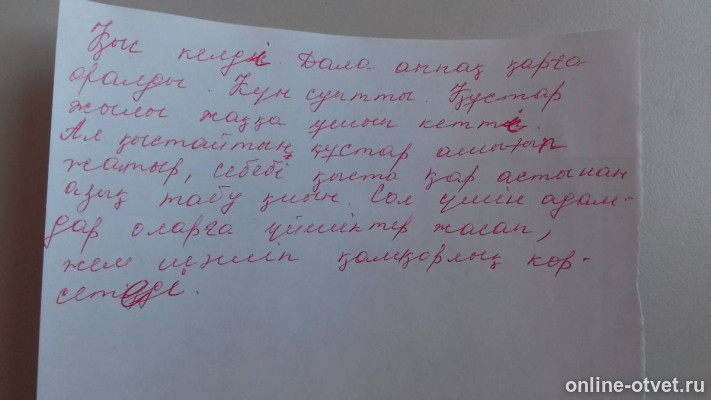 Қыс келді. Дала аппақ қарға
оралды. Күн суытты. Құстар
жылы жаққа ұшып кетті.
Ал қыстайтын құстар ашығып
жатыр, себебі қыста қар астынан
азық табу қиын. Сол үшін адам-
дар оларға үйшіктер жасап,
жем шашып қамқорлық көр-
сетеді.
online-otvet.ru